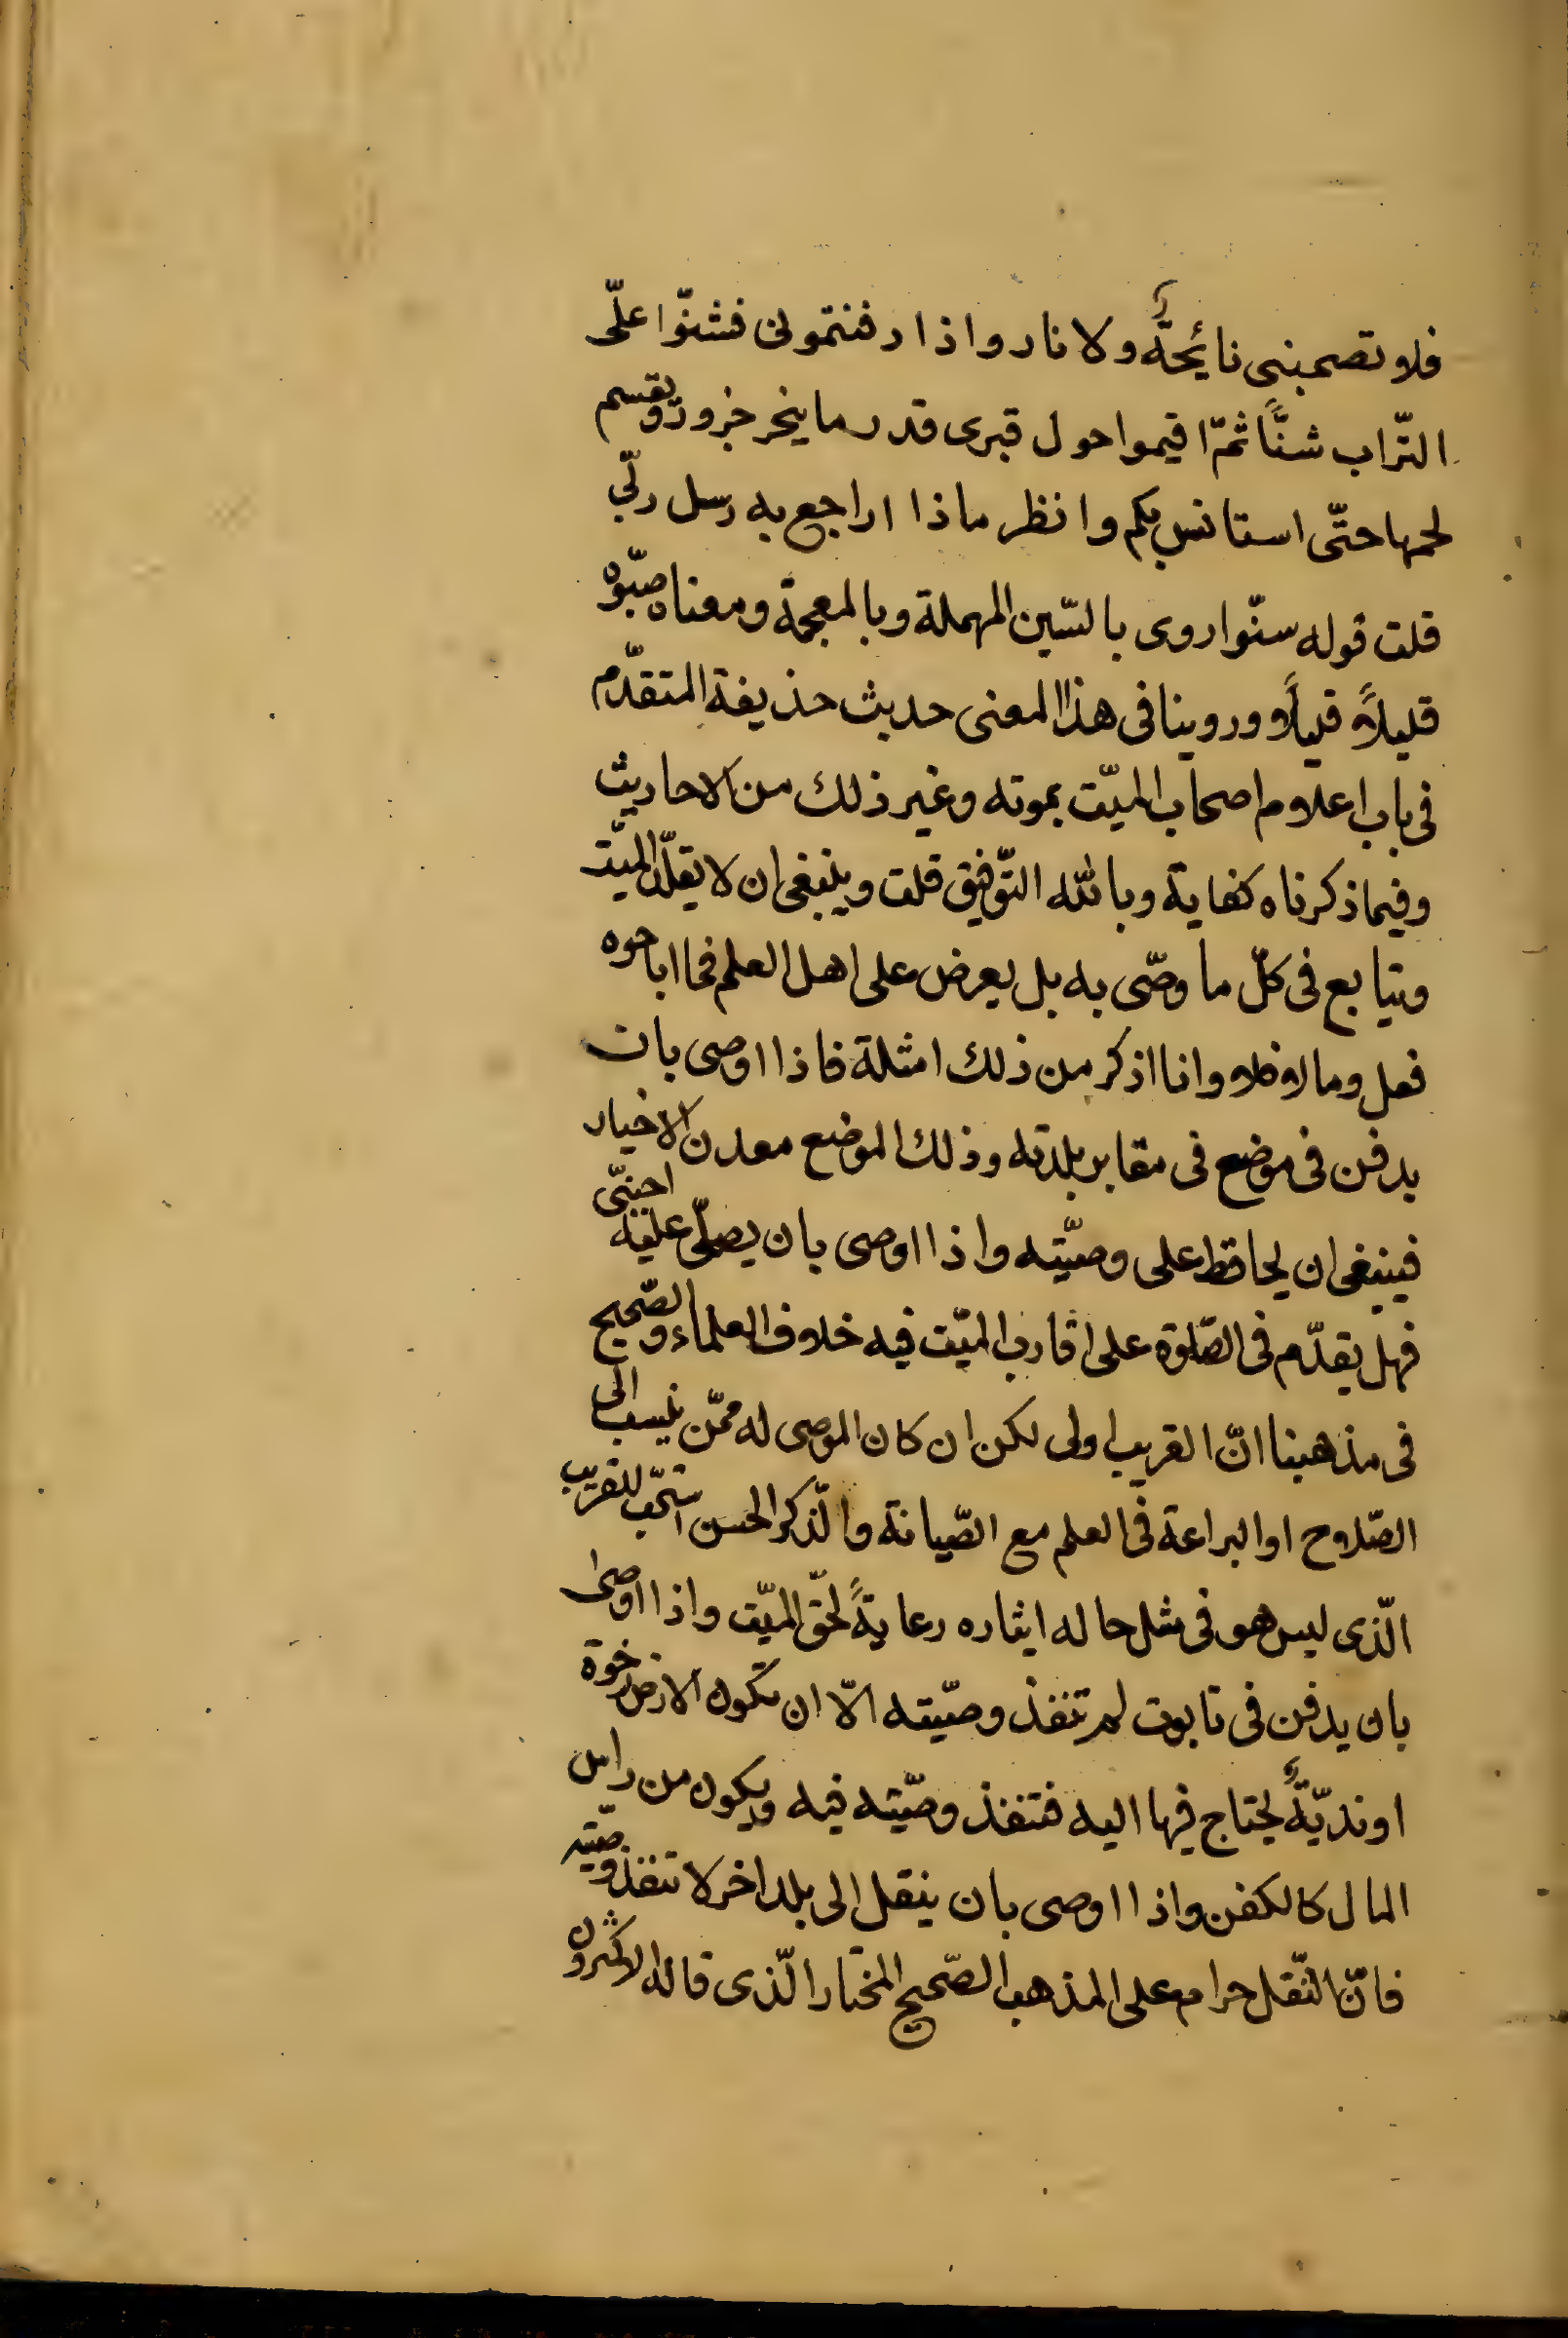 فلا تصحبنى نائحةٌ ولا نار واذا دفنتمونى فشنّوا علىّ
التّراب شنًّا ثمّ اقيموا حول قبرى قدر ما ينحر جزور ويقسم
لحمها حتّى استانس بكم وانظر ماذا اراجع به رسل ربّى
قلت قوله سنّوا روى بالسّين المهملة وبالمعجمة ومعناه صبّوه
قليلاً قليلاً وروينا فى هذا المعنى حديث حذيفة المتقدّم
فى باب اعلام اصحاب الميّت بموته وغير ذلك من الاحاديث
وفيما ذكرناه كفاية وبالله التّوفيق قلت وينبغى ان لا يقلّد الميّت
ويتابع فى كلّ ما وصّى به بل يعرض على اهل العلم فما اباحوه
فعل وما لا فلا وانا اذكر من ذلك امثلة فاذا اوصى بان
يدفن فى موضع فى مقابر بلدته وذلك الموضع معدن الاخيار
فينبغى ان يحافظ على وصيّته واذا اوصى بان يصلّى عليه اجنبىّ
فهل يقدّم فى الصّلوة على اقارب الميّت فيه خلاف العلماء والصّحيح
فى مذهبنا انّ القريب اولى لكن ان كان الموصى له ممّن ينسب الى
الصّلاح او البراعة فى العلم مع الصّيانة والذّكر الحسن استحبّ للقريب
الّذى ليس هو فى مثل حاله ايثاره رعايةً لحقّ الميّت واذا اوصى
بان يدفن فى تابوت لم تنفذ وصيّته الّا ان تكون الارض رخوة
او نديّةً يحتاج فيها اليه فتنفذ وصيّته فيه ويكون من راس
المال كالكفن واذا اوصى بان ينقل الى بلد اخر لا تنفذ وصيّته
فانّ النّقل حرام على المذهب الصّحيح المختار الّذى قاله الاكثرون